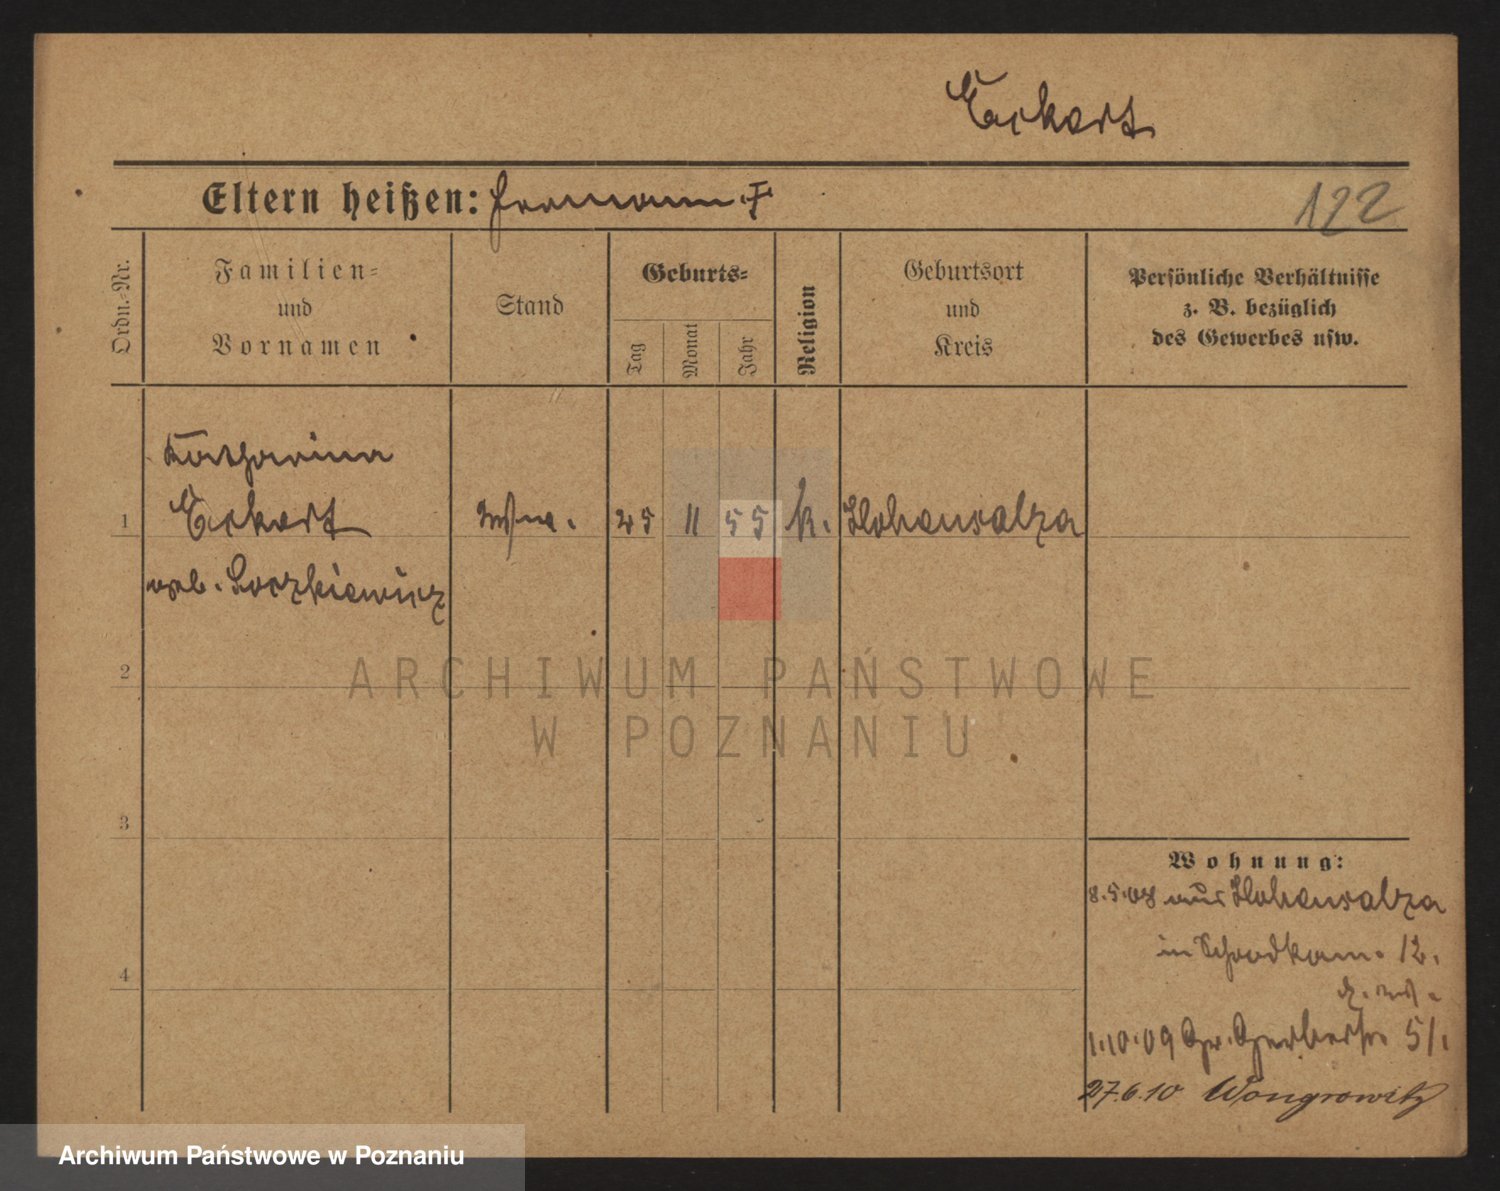 Eckert
Eltern heißen: Hermann †
122
Ordn.-Nr.
Familien-
und
Vornamen
Stand
Geburts-
Tag
Monat
Jahr
Religion
Geburtsort
und
Kreis
Persönliche Verhältnisse
z. B. bezüglich
des Gewerbes usw.
Katharina
1 Eckert Wwe. 25 11 55 k. Hohensalza
geb. Loczkiewicz
2
3
4
Wohnung:
8.5.08 aus Hohensalza
in 12.
1.10.09 Gr. Gerberstr. 51.
27.6.10 Wongrowitz
ARCHIWUM PAŃSTWOWE
W POZNANIU
Archiwum Państwowe w Poznaniu